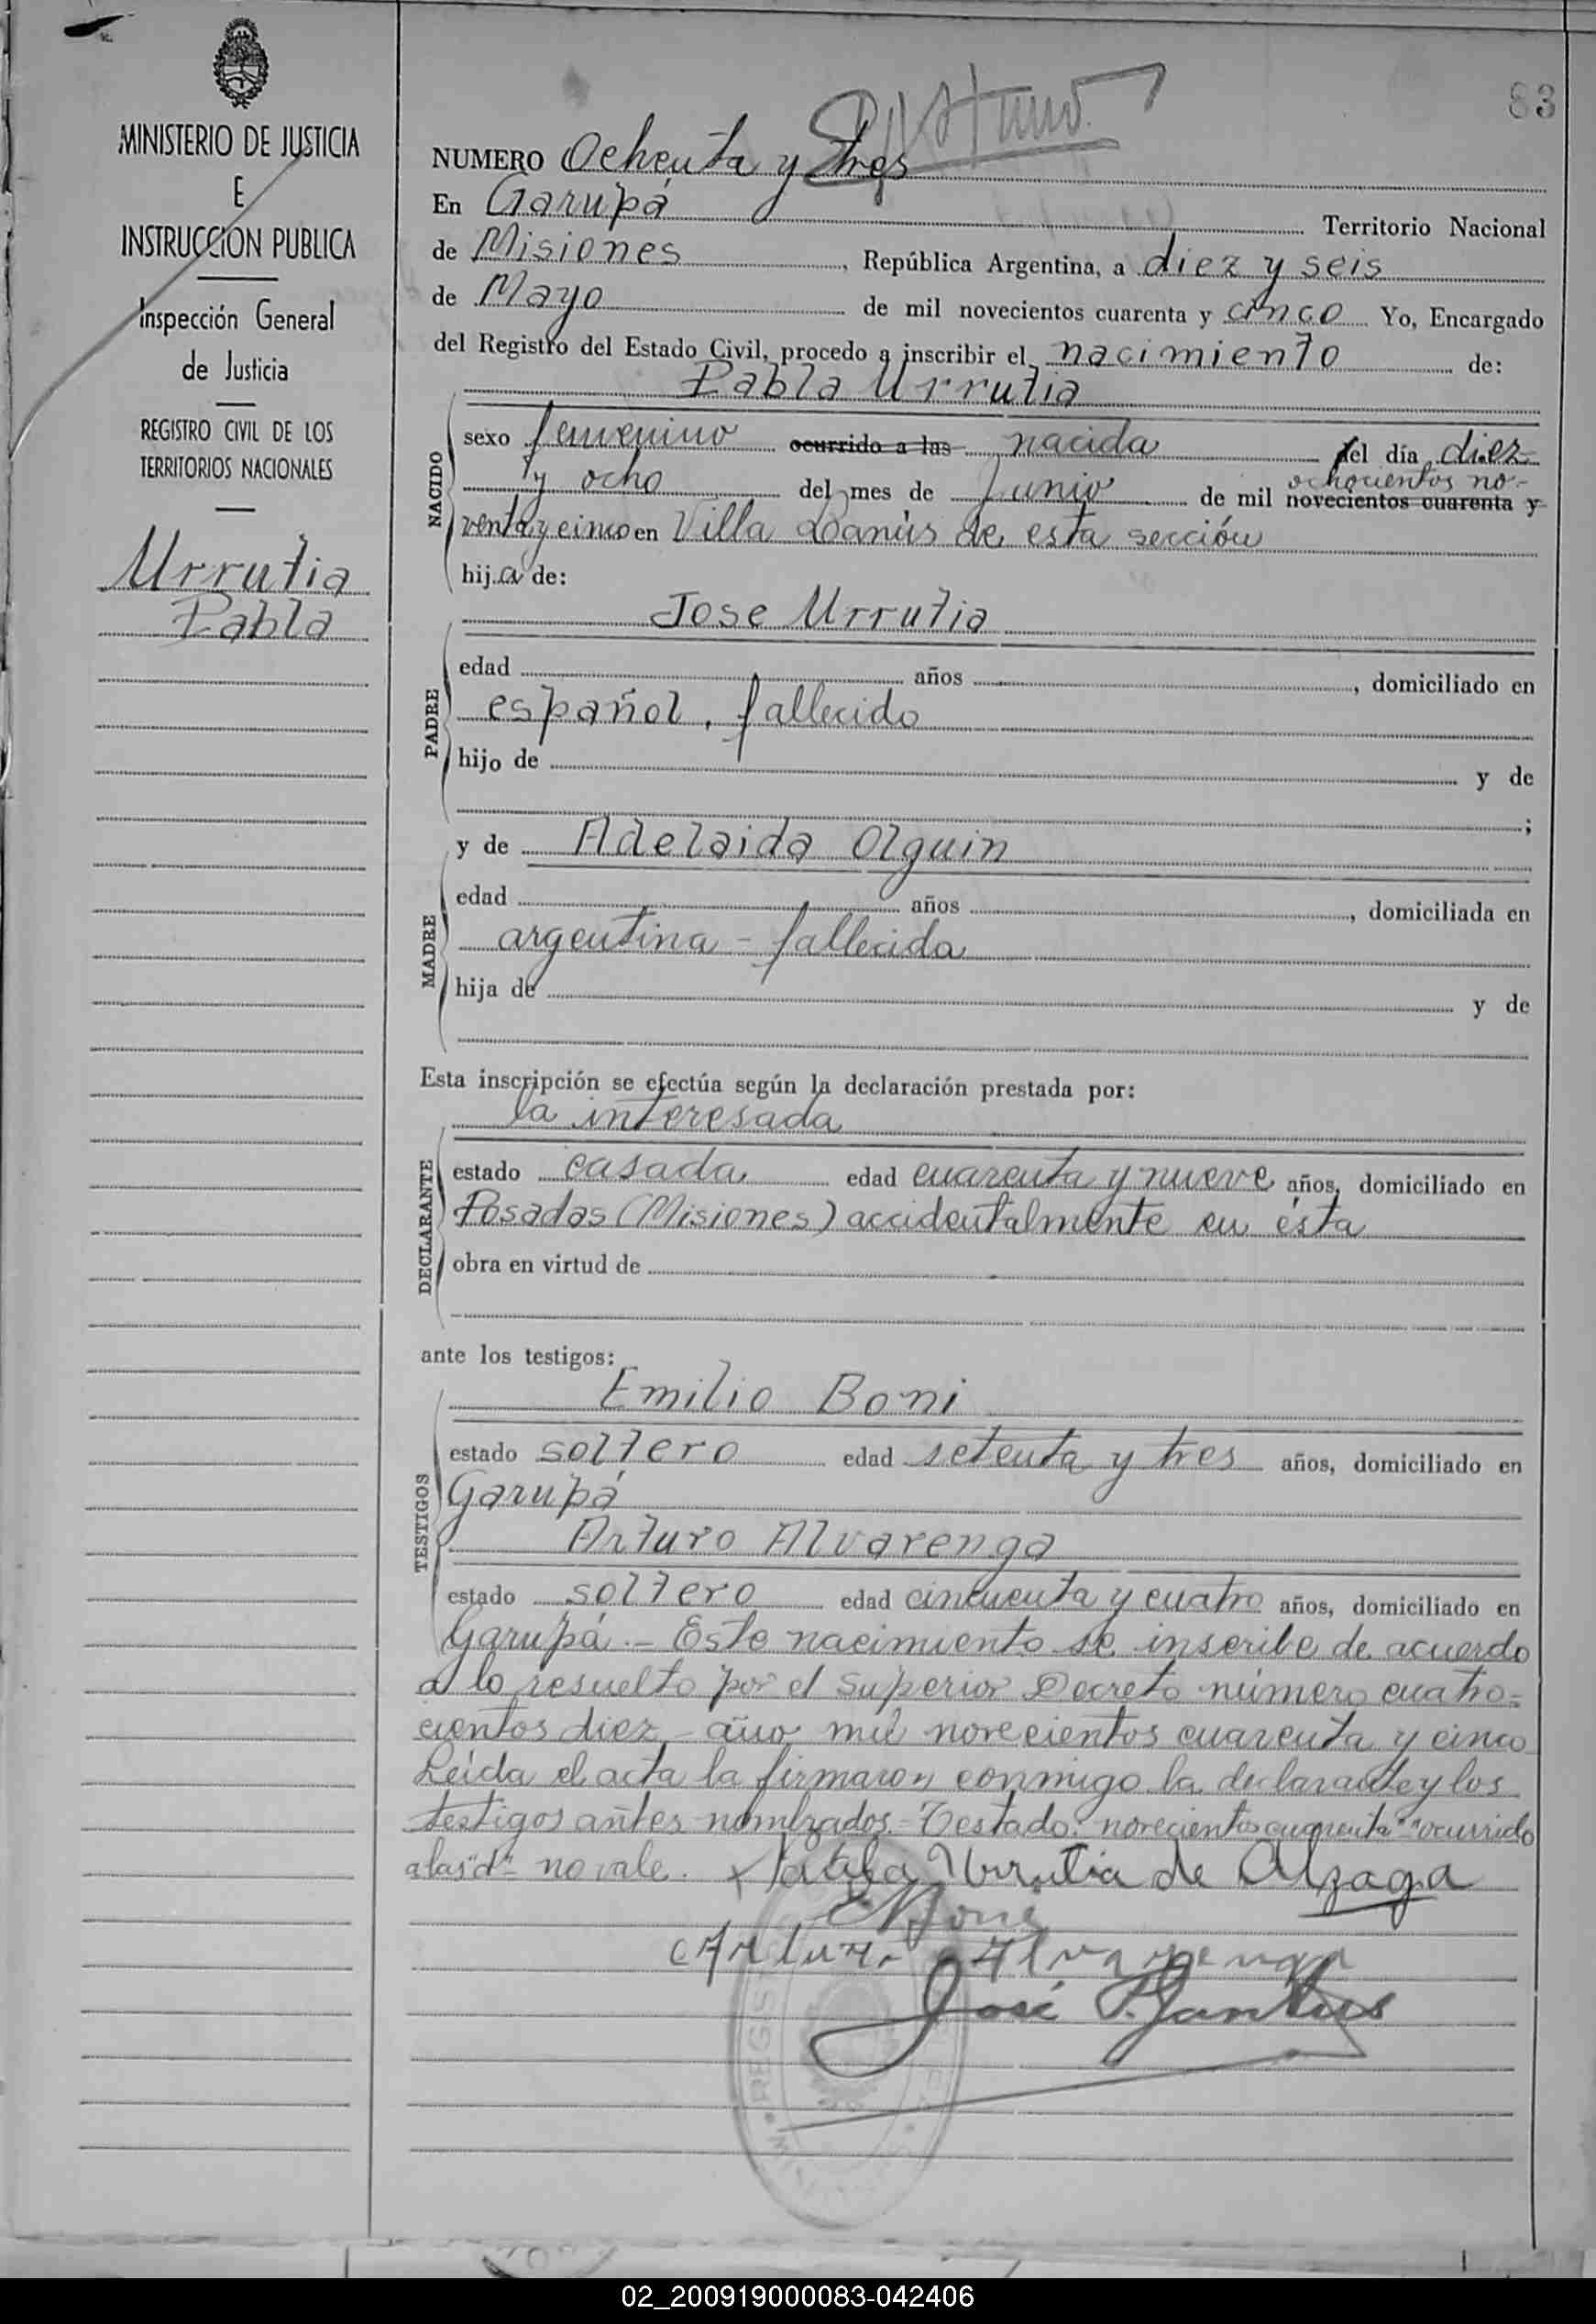 83
MINISTERIO DE JUSTICIA
E
INSTRUCCIÓN PUBLICA
Inspección General
de Justicia
REGISTRO CIVIL DE LOS
TERRITORIOS NACIONALES
Urrutia
Pabla
NUMERO Ochenta y tres
En Garupá Territorio Nacional
de Misiones, República Argentina, a diez y seis
de Mayo de mil novecientos cuarenta y cinco Yo, Encargado
del Registro del Estado Civil, procedo a inscribir el nacimiento de:
Pabla Urrutia
NACIDO
sexo femenino ocurrido a las nacida del día diez
y ocho del mes de Junio de mil novecientos cuarenta y
ochocientos no-
venta y cinco en Villa Lanús de esta sección
hija de:
PADRE
Jose Urrutia
edad años, domiciliado en
español, fallecido
hijo de y de
;
MADRE
y de Adelaida Olguin
edad años, domiciliada en
argentina - fallecida
hija de y de
Esta inscripción se efectúa según la declaración prestada por:
DECLARANTE
la interesada
estado casada edad cuarenta y nueve años, domiciliado en
Posadas (Misiones) accidentalmente en ésta
obra en virtud de
ante los testigos:
TESTIGOS
Emilio Boni
estado soltero edad setenta y tres años, domiciliado en
Garupá
Arturo Alvarenga
estado soltero edad cincuenta y cuatro años, domiciliado en
Garupá.- Este nacimiento se inscribe de acuerdo
a lo resuelto por el Superior Decreto número cuatro-
cientos diez - año mil novecientos cuarenta y cinco
Leída el acta la firmaron conmigo la declarante y los
testigos antes nombrados.- Testado: novecientos cuarenta" "ocurrido
a las" d"- no vale. x Pabla Urrutia de Alzaga
E Boni
Arturo Alvarenga
José P.
REGIS
02_200919000083-042406